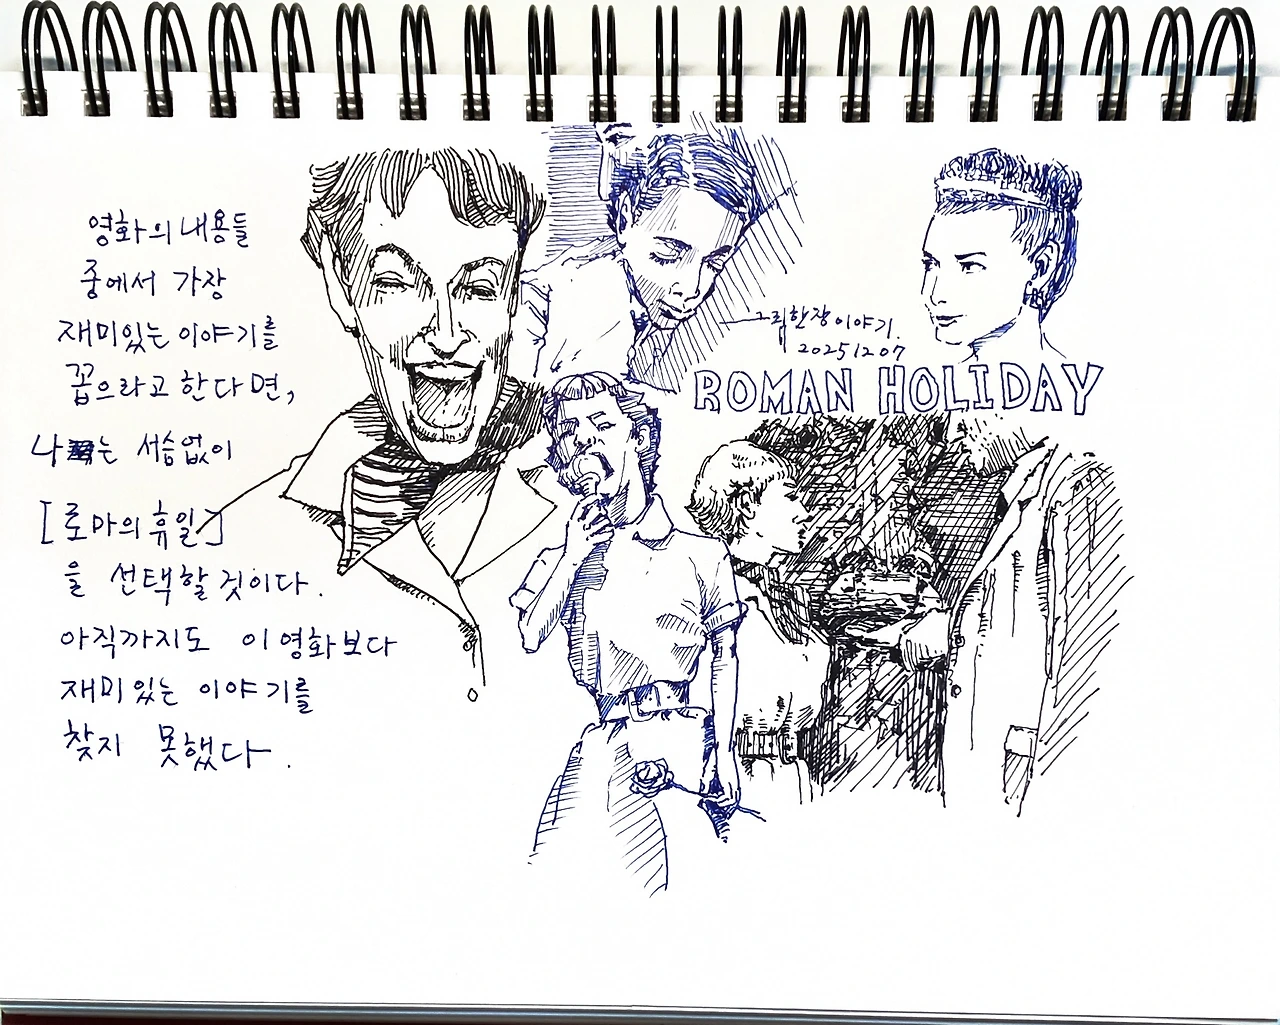 영화의 내용들
중에서 가장
재미있는 이야기를
꼽으라고 한다면,
나는 서슴없이
[로마의 휴일]
을 선택할 것이다.
아직까지도 이 영화보다
재미있는 이야기를
찾지 못했다.
그림한장이야기.
20251207
ROMAN HOLIDAY